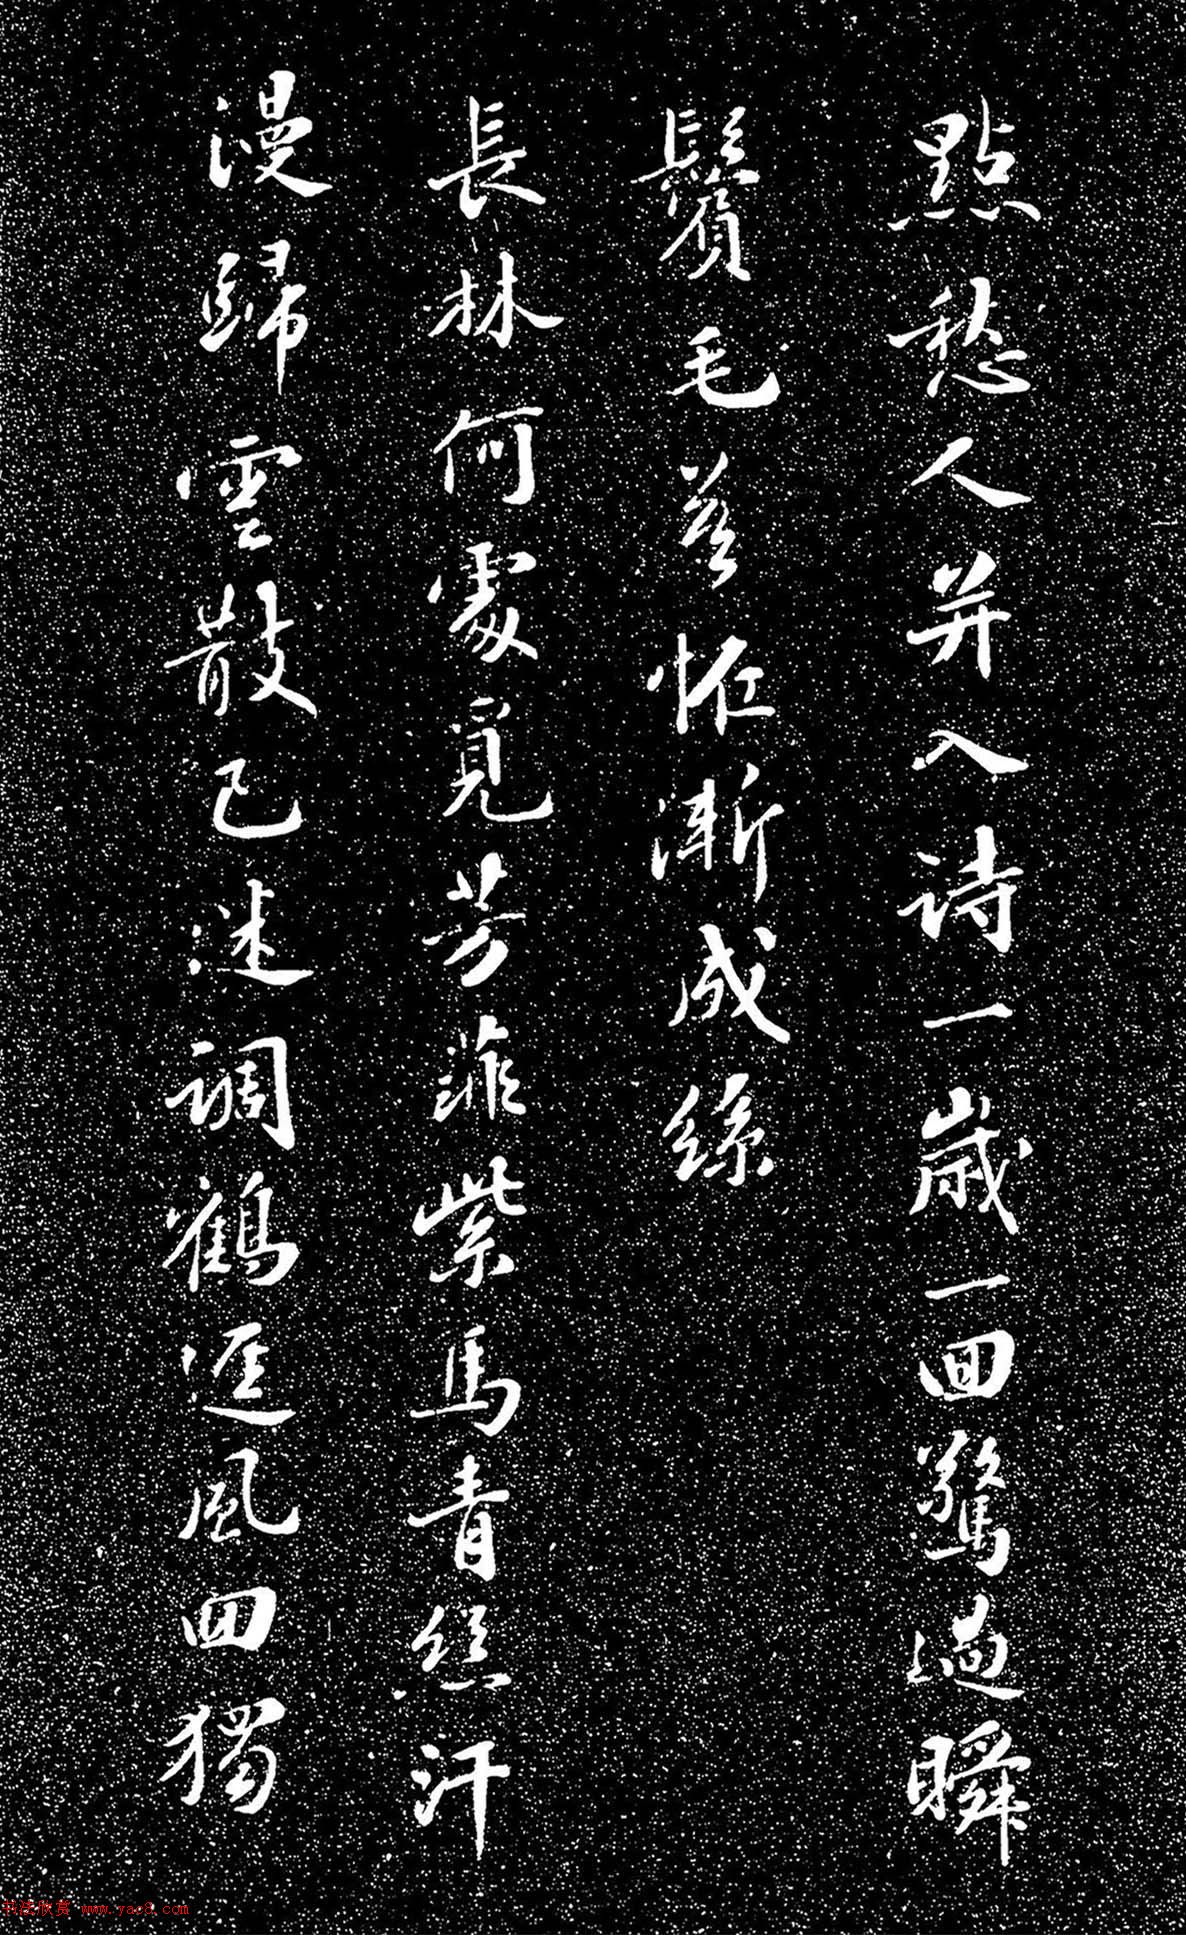 點愁人并入詩一歲一回驚過瞬
鬢毛莫怪漸成絲
長林何處覓芳菲紫馬青絲汗
漫歸雲散已迷調鶴逕風回獨
书法欣赏 www.yac8.com